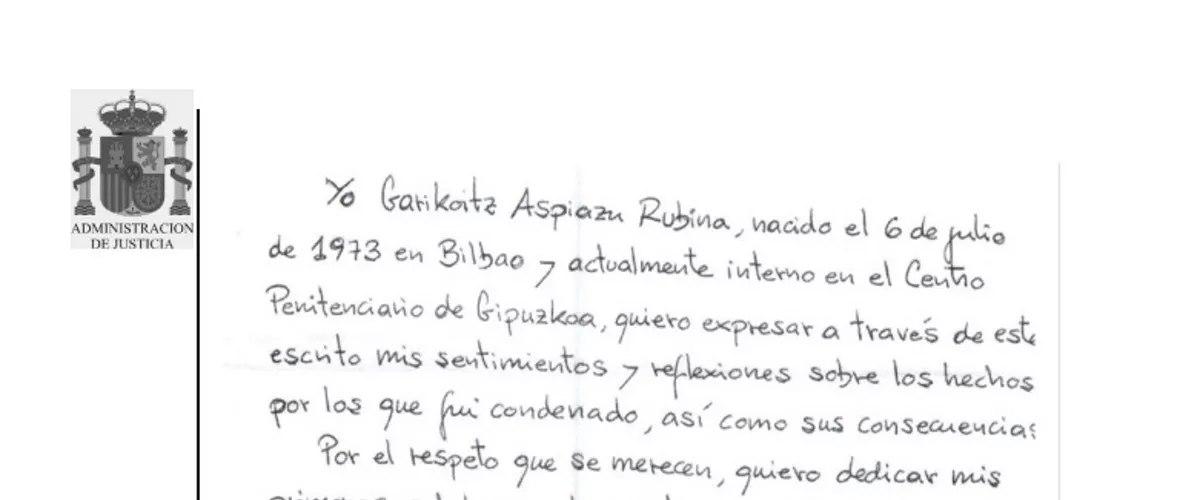 ADMINISTRACION
DE JUSTICIA
Yo Garikoitz Aspiazu Rubina, nacido el 6 de julio
de 1973 en Bilbao y actualmente interno en el Centro
Penitenciario de Gipuzkoa, quiero expresar a través de este
escrito mis sentimientos y reflexiones sobre los hechos
por los que fui condenado, así como sus consecuencias
Por el respeto que se merecen, quiero dedicar mis